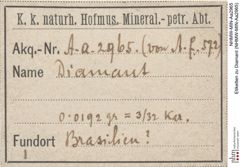 K. k. naturh. Hofmus. Mineral.- petr. Abt.
Akq.-Nr. A.a.2965. (von A.f.572)
Name Diamant
0.0192 gr = 3/32 Kar.
Fundort Brasilien?
NHMW-MIN-Aa2965
Etiketten zu Diamant (NHMW-MIN-Aa2965)